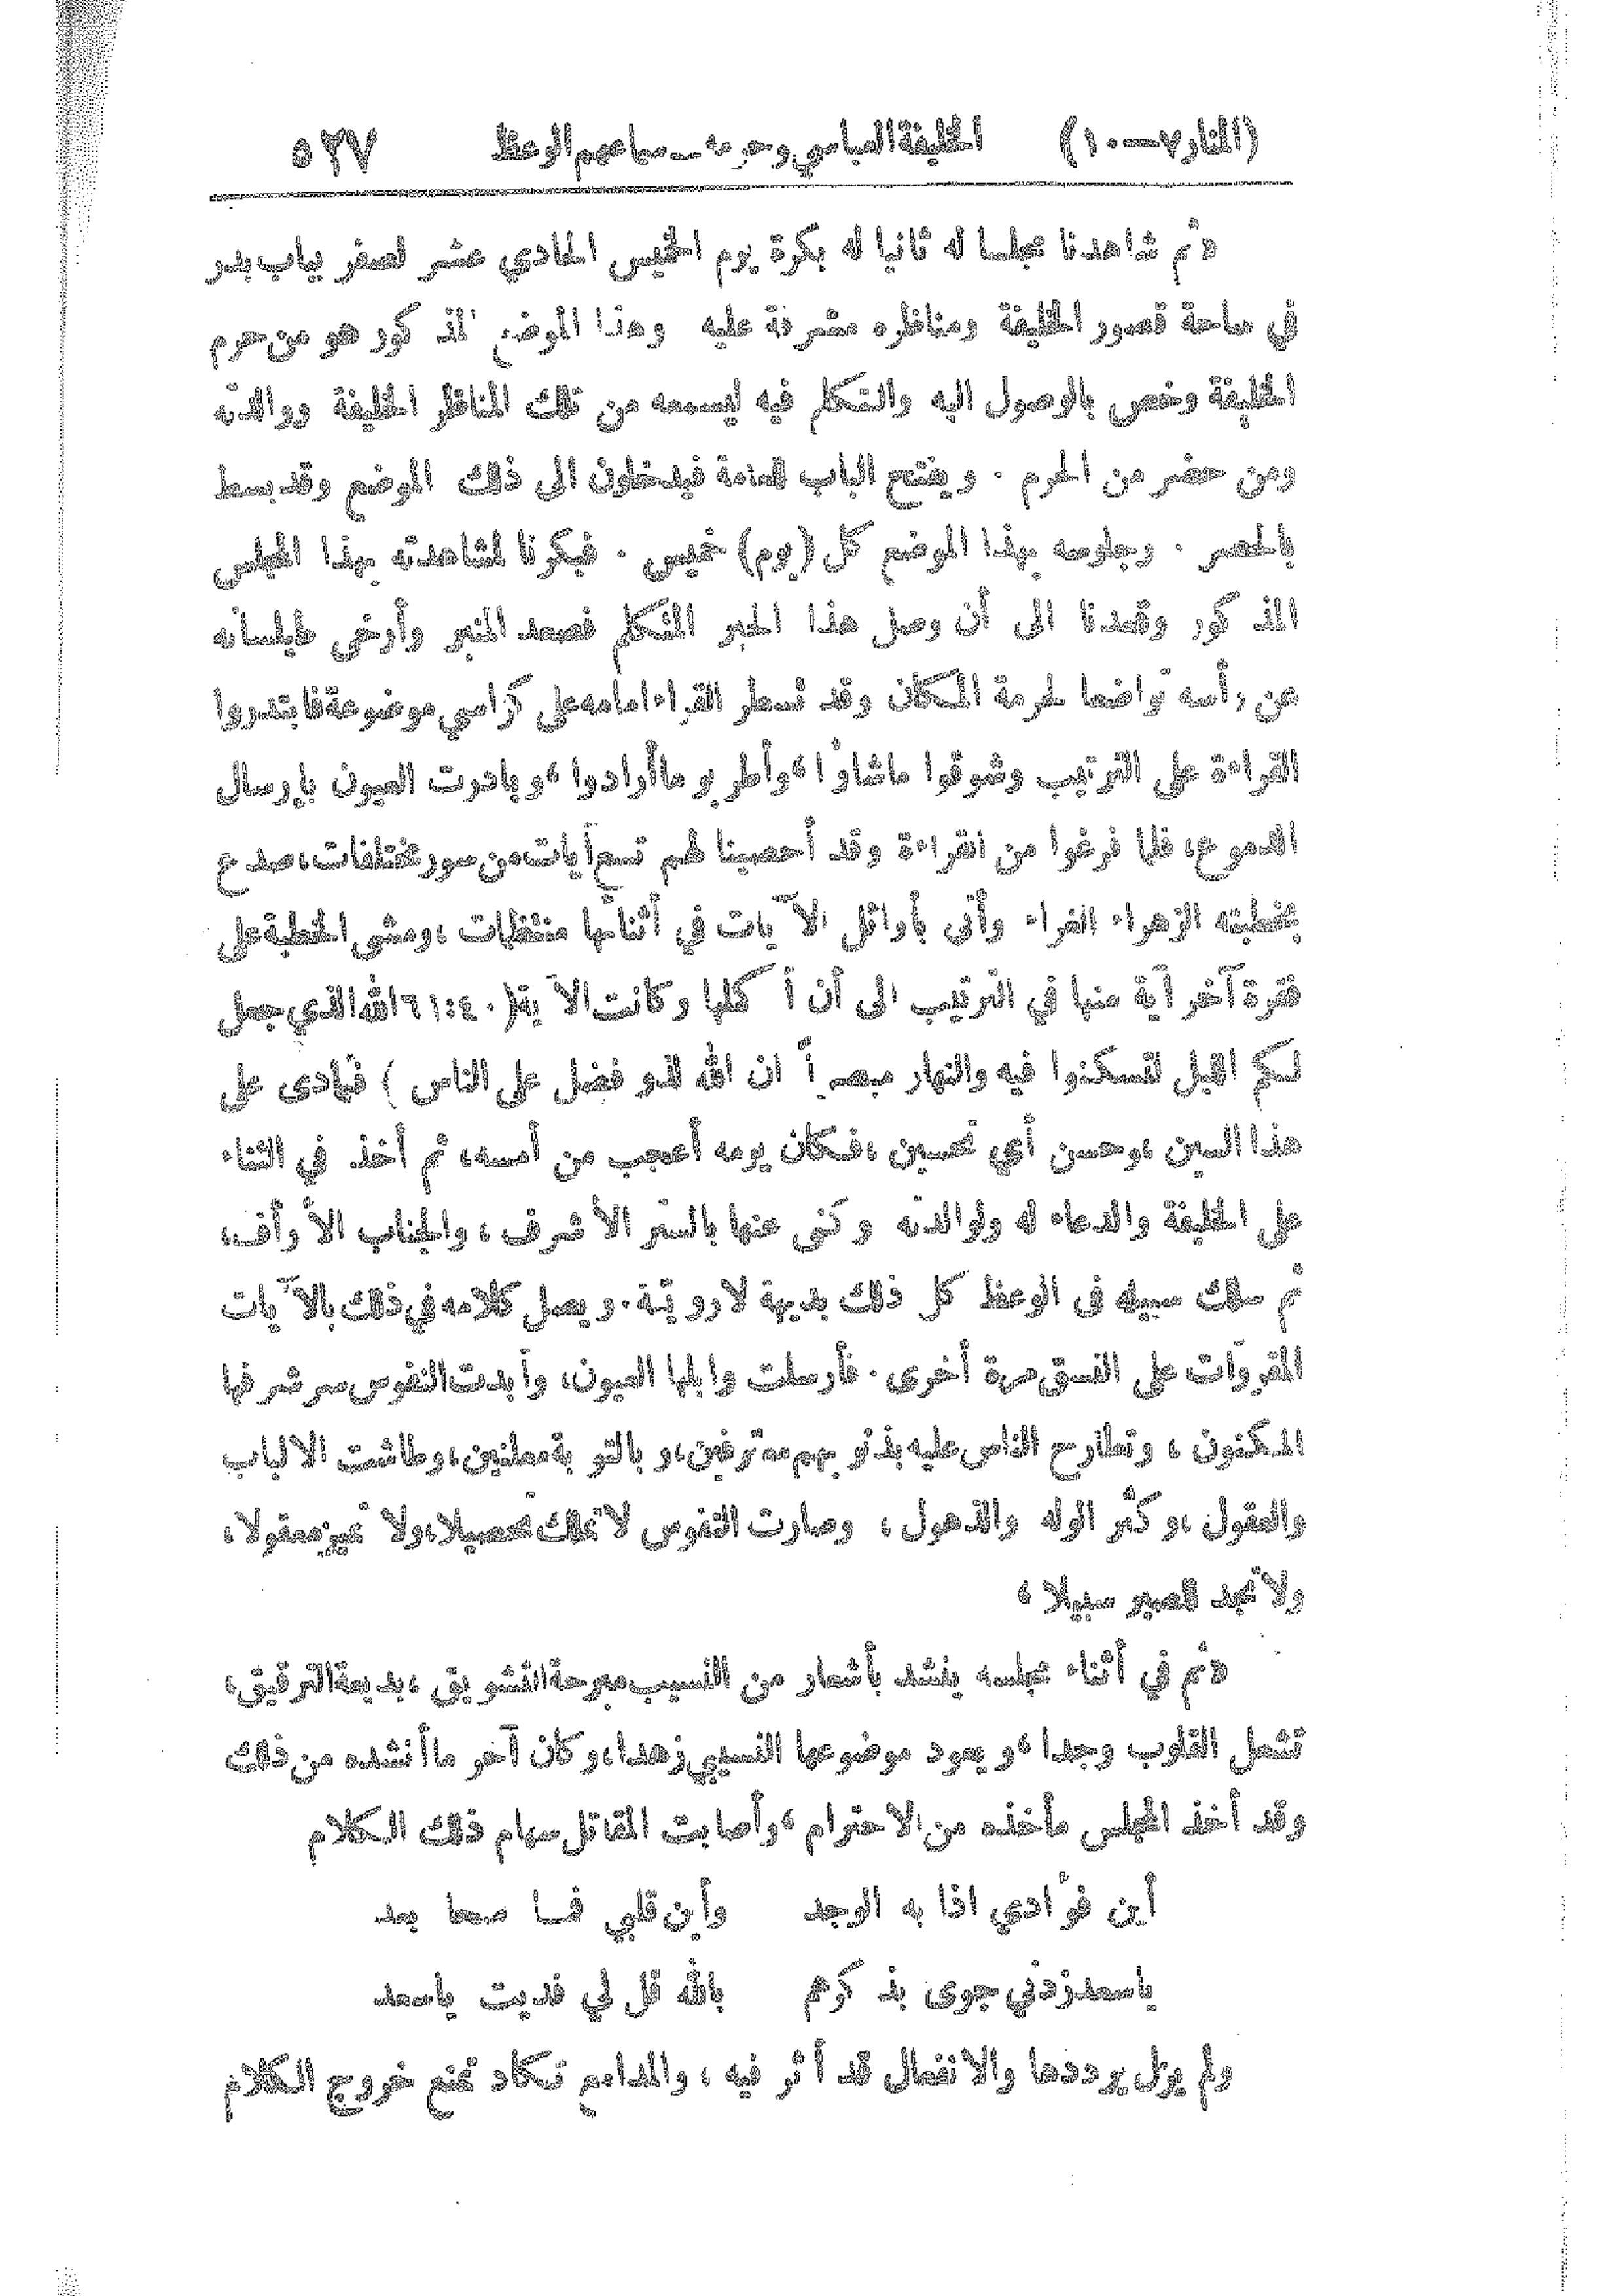 (المنار ٧ــ١٠) الخليفة العباسي وحرمه ــ سماعهم الوعظ ٥٣٧
«ثم شاهدنا مجلسا له ثانيا له بكرة يوم الخميس الحادي عشر لصفر بباب بدر
في ساحة قصور الخليفة ومناظره مشرفة عليه وهذا الموضع المذكور هو من حرم
الخليفة وخص بالوصول اليه والتكلم فيه ليسمعه من تلك المناظر الخليفة ووالدته
ومن حضر من الحرم . ويفتح الباب للعامة فيدخلون الى ذلك الموضع وقد بسط
بالحصر . وجلوسه بهذا الموضع كل (يوم) خميس . فبكرنا لمشاهدته بهذا المجلس
المذكور وقعدنا الى أن وصل هذا الحبر المتكلم فصعد المنبر وأرخى طيلسانه
عن رأسه تواضعا لحرمة المكان وقد تسطر القراء امامه على كراسي موضوعة فابتدروا
القراءة على الترتيب وشوقوا ماشاؤا، وأطربو ماأرادوا، وبادرت العيون بإرسال
الدموع، فلما فرغوا من القراءة وقد أحصينا لهم تسع آيات من سور مختلفات، صدع
بخطبته الزهراء الغراء وأتى بأوائل الآيات في أثنائها منتظمات، ومشى الخطبة على
فقرة آخر آية منها في الترتيب الى أن أكملها وكانت الآية (٦١:٤٠ الله الذي جعل
لكم الليل لتسكنوا فيه والنهار مبصراً ان الله لذو فضل على الناس) فتمادى على
هذا السين، وحسن أي تحسين، فكان يومه أعجب من أمسه، ثم أخذ في الثناء
على الخليفة والدعاء له ولوالدته وكنى عنها بالستر الأشرف، والجناب الأرأف،
ثم سلك سبيله فى الوعظ كل ذلك بديهة لا رويّة. ويصل كلامه في ذلك بالآيات
المقروآت على النسق مرة أخرى. فأرسلت وابلها العيون، وأبدت النفوس سر شرفها
المكنون، وتطارح الناس عليه بذنوبهم معترفين، وبالتوبة معلنين، وطاشت الالباب
والعقول، وكثر الوله والذهول، وصارت النفوس لا تملك تحصيلا، ولا تميز معقولا،
ولا تجد للصبر سبيلا،
«ثم في أثناء مجلسه ينشد بأشعار من النسيب مبرحة التشويق، بديعة الترقيق،
تشعل القلوب وجدا، ويعود موضوعها النسيبي زهدا، وكان آخر ماأنشده من ذلك
وقد أخذ المجلس مأخذه من الاحترام، وأصابت المقاتل سهام ذلك الكلام
أين فؤادي اذابه الوجد وأين قلبي فما صحا بعد
ياسعد زدني جوى بذكرهم بالله قل لي فديت ياسعد
ولم يزل يرددها والانفعال قد أثر فيه، والمدامع تكاد تمنع خروج الكلام